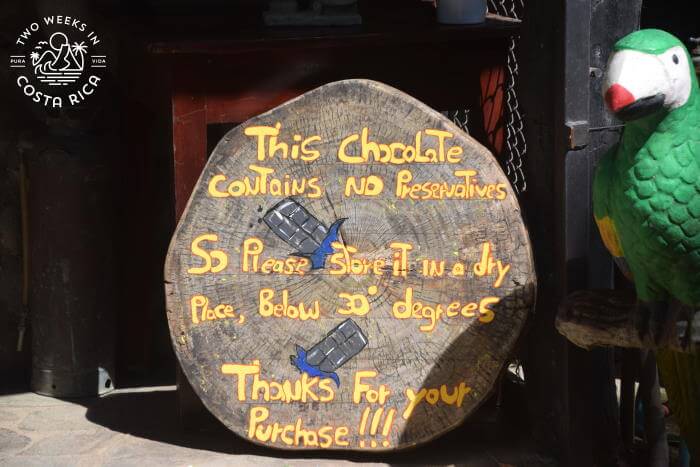 TWO WEEKS IN
PURA VIDA
COSTA RICA
This Chocolate
contains no Preservatives
So Please store it in a dry
Place, Below 30° degrees
Thanks For your
Purchase!!!